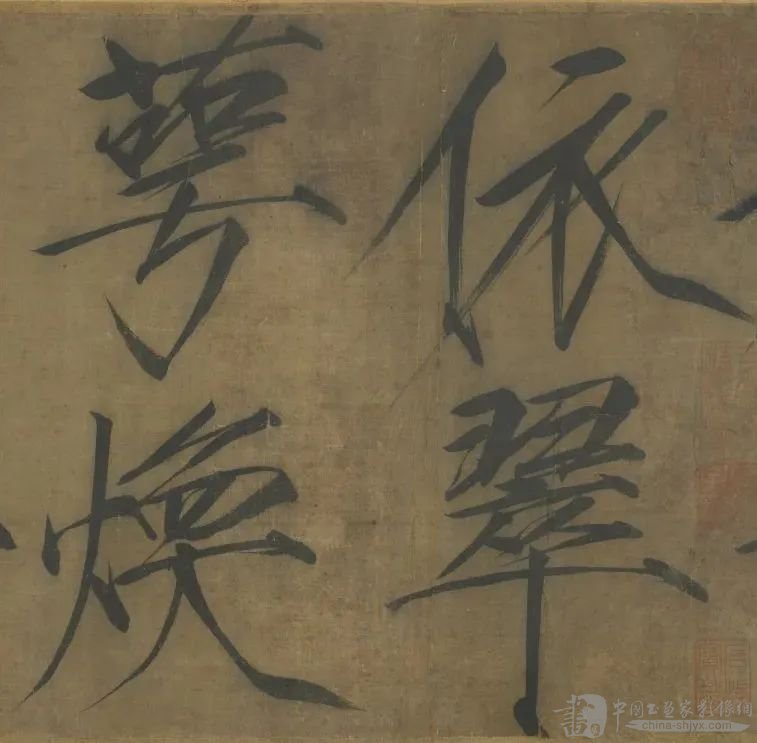 依翠
蕚煥
中国书画家影像網
china-shjyx.com